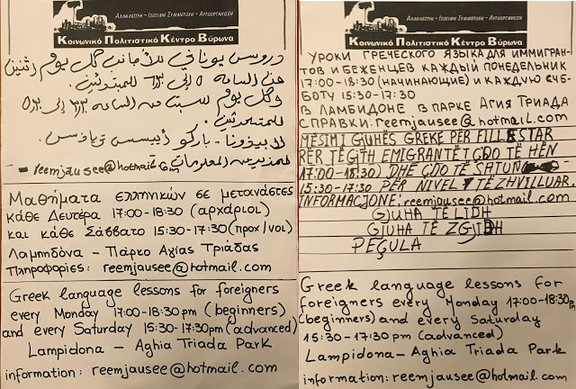 ΑΛΛΗΛΕΓΓΥΗ - ΙΣΟΤΙΜΗ ΣΥΜΜΕΤΟΧΗ - ΑΥΤΟΟΡΓΑΝΩΣΗ
Κοινωνικό Πολιτιστικό Κέντρο Βύρωνα
دروس يوناني للأجانب كل يوم اثنين
من الساعة ٥ إلى ٦:٣٠ للمبتدئين
وكل يوم السبت من الساعة ٣:٣٠ إلى ٥:٣٠
باركو تريادس
للمزيد من المعلومات
reemjausee@hotmail.com
Μαθήματα ελληνικών σε μετανάστες
κάθε Δευτέρα 17:00-18:30 (αρχάριοι)
και κάθε Σάββατο 15:30-17:30 (προχ/νοι)
Λαμπηδόνα - Πάρκο Αγίας Τριάδας
Πληροφορίες: reemjausee@hotmail.com
Greek language lessons for foreigners
every Monday 17:00-18:30 pm (beginners)
and every Saturday 15:30-17:30pm (advanced)
Lampidona - Aghia Triada Park
information: reemjausee@hotmail.com
ΑΛΛΗΛΕΓΓΥΗ - ΙΣΟΤΙΜΗ ΣΥΜΜΕΤΟΧΗ - ΑΥΤΟΟΡΓΑΝΩΣΗ
Κοινωνικό Πολιτιστικό Κέντρο Βύρωνα
УРОКИ ГРЕЧЕСКОГО ЯЗЫКА ДЛЯ ИММИГРАН-
ТОВ И БЕЖЕНЦЕВ КАЖДЫЙ ПОНЕДЕЛЬНИК
17:00-18:30 (НАЧИНАЮЩИЕ) И КАЖДУЮ СУБ-
БОТУ 15:30-17:30
В ЛАМБИДОНЕ В ПАРКЕ АГИЯ ТРИАДА
СПРАВКИ: reemjausee@hotmail.com
MËSIMI GJUHËS GREKE PËR FILLESTAR
PËR TËGITH EMIGRANTËT ÇDO TË HËN
17:00-18:30) DHE ÇDO TË SHTUN
15:30-17:30 PËR NIVEL TË ZHVILLUAR.
INFORMACJONE: reemjausee@hotmail.com
GJUHA TË LIDH
GJUHA TË ZGJIDH
PEÇULA
Greek language lessons for
foreigners every Monday 17:00-18:30p
(beginners) and every Saturday
15:30-17:30 pm (advanced)
Lampidona-Aghia Triada Park
information: reemjausee@hotmail.com